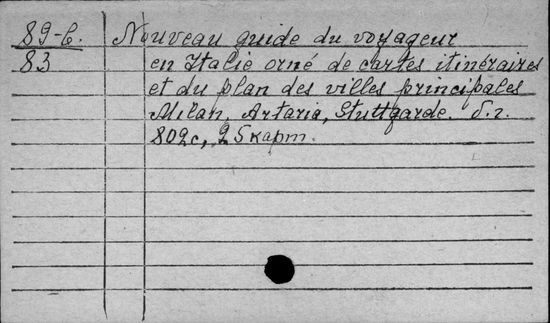 89-б. Nouveau guide du voyageur
83 en Italie orné de cartes itinéraires
et du plan des villes principales
Milan, Artaria, Stuttgarde. б.г.
802с, 25 карт.